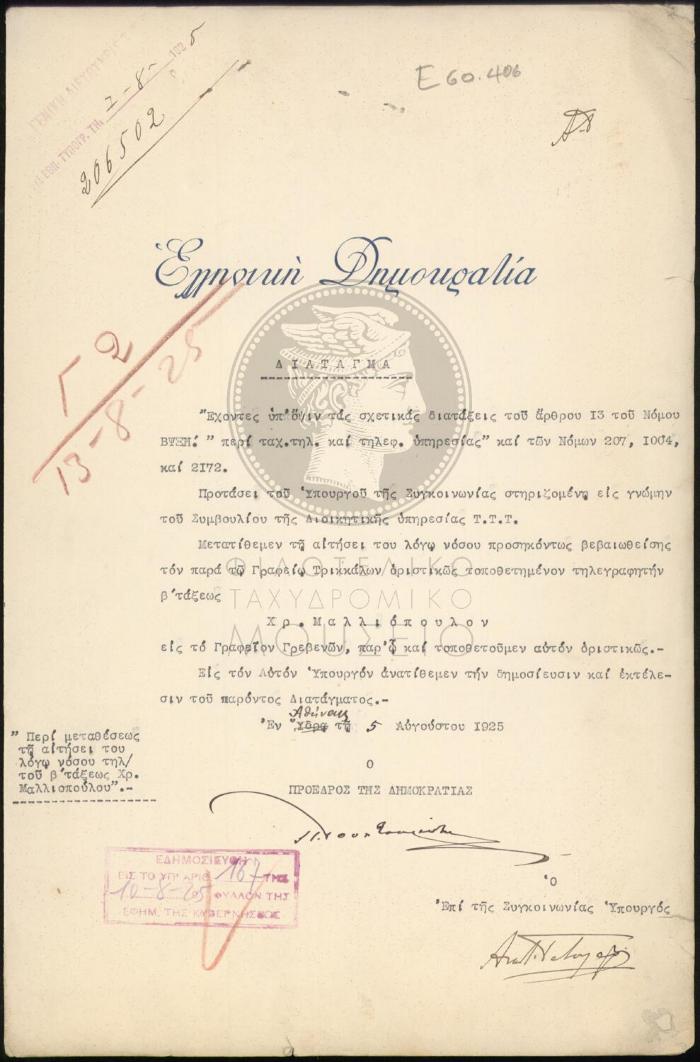 ΓΕΝΙΚΗ ΔΙΕΥΘΥΝΣΙΣ
ΤΥΠΟΓΡ. ΤΗ, 7-8- 1925
206502
Ε 60.406
Ἑλληνικὴ Δημοκρατία
Γ2
13-8-25
ΔΙΑΤΑΓΜΑ
Ἔχοντες ὑπ'ὄψιν τάς σχετικάς διατάξεις τοῦ ἄρθρου 13 τοῦ Νόμου
ΒΨΞΗ. " περί ταχ.τηλ. καί τηλεφ. ὑπηρεσίας" καί τῶν Νόμων 207, 1004,
καί 2172.
Προτάσει τοῦ Ὑπουργοῦ τῆς Συγκοινωνίας στηριζομένῃ εἰς γνώμην
τοῦ Συμβουλίου τῆς Διοικητικῆς ὑπηρεσίας Τ.Τ.Τ.
Μετατίθεμεν τῇ αἰτήσει του λόγῳ νόσου προσηκόντως βεβαιωθείσης
τόν παρά τῷ Γραφείῳ Τρικκάλων ὁριστικῶς τοποθετημένον τηλεγραφητήν
β'τάξεως
Χρ. Μαλλιόπουλον
εἰς τό Γραφεῖον Γρεβενῶν, παρ'ᾧ καί τοποθετοῦμεν αὐτόν ὁριστικῶς.-
Εἰς τόν Αὐτόν Ὑπουργόν ἀνατίθεμεν τήν δημοσίευσιν καί ἐκτέλε-
σιν τοῦ παρόντος Διατάγματος.-
Ἀθήναις
Ἐν Ὕδρᾳ τῇ 5 Αὐγούστου 1925
" Περί μεταθέσεως
τῇ αἰτήσει του
λόγῳ νόσου τηλ/
τοῦ β'τάξεως Χρ.
Μαλλιοπούλου".-
Ο
ΠΡΟΕΔΡΟΣ ΤΗΣ ΔΗΜΟΚΡΑΤΙΑΣ
ΕΔΗΜΟΣΙΕΥΘΗ
ΕΙΣ ΤΟ ΥΠ' ΑΡΙΘ 187 ΤΗΣ
10-8-25 ΦΥΛΛΟΝ ΤΗΣ
ΕΦΗΜ. ΤΗΣ ΚΥΒΕΡΝΗΣΕΩΣ
Ὁ
Ἐπί τῆς Συγκοινωνίας Ὑπουργός
ΦΙΛΟΤΕΛΙΚΟ
ΤΑΧΥΔΡΟΜΙΚΟ
ΜΟΥΣΕΙΟ